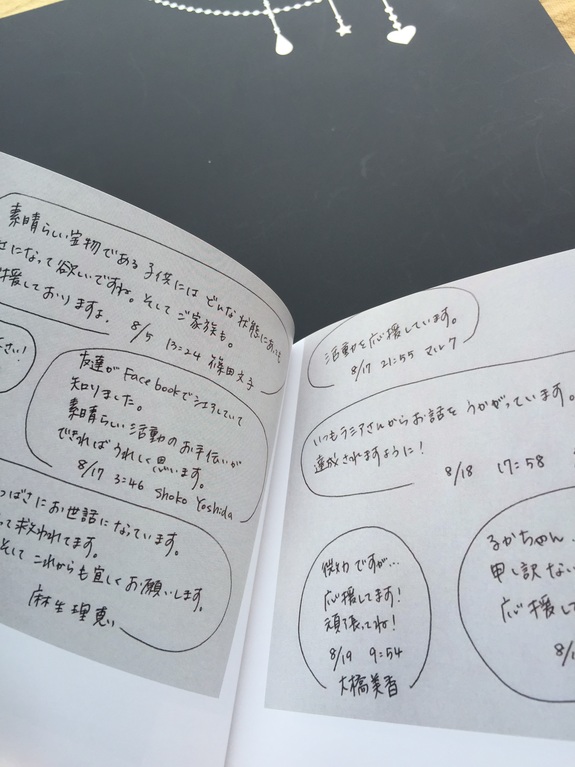 素晴らしい宝物である子供には どんな状態にあっても
さになって欲しいですね。そしてご家族も。
援しておりますよ.
8/5 13:24 篠田文子
さい!
友達がFacebookでシェアしていて
知りました。
素晴らしい活動のお手伝いが
できればうれしく思います。
8/17 3:46 Shoko Yoshida
つばさにお世話になっています。
って救われてます。
そして これからも宜しくお願いします。
麻生理恵
活動を応援しています。
8/17 21:55
いつもラミアさんからお話を うかがっています。
達成されますように!
8/18 17:58
微力ですが…
応援してます!
頑張ってね!
8/19 9:54
大橋美香
るかちゃん
申し訳ない
応援して
8/